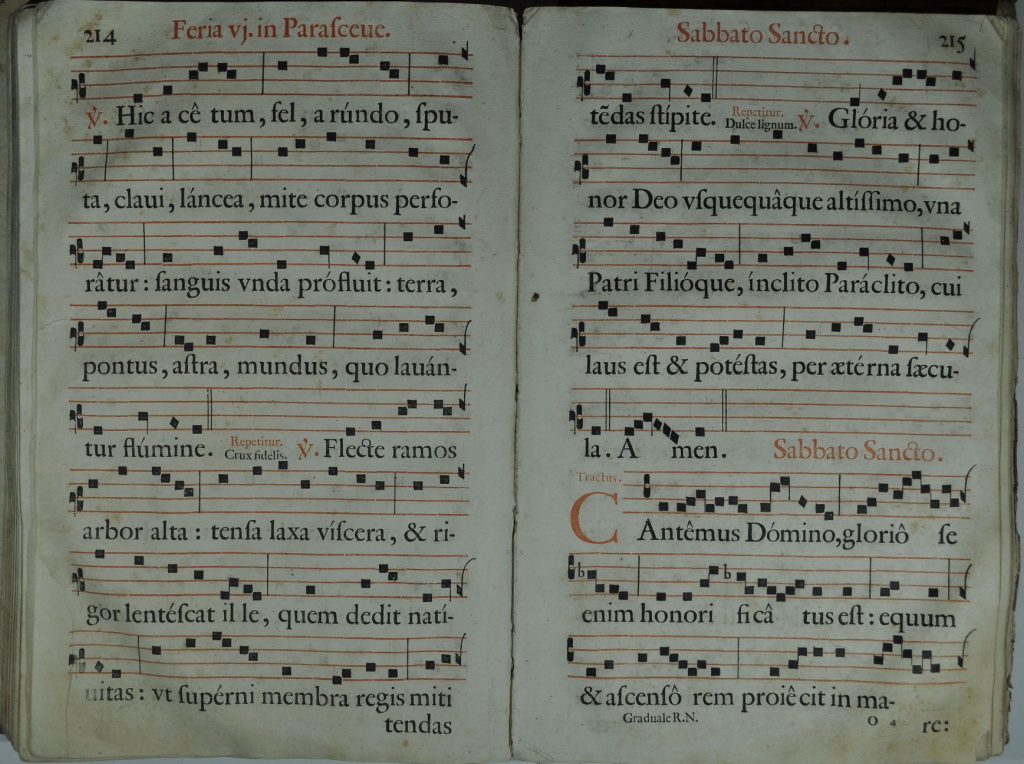 214
Feria vj. in Paraſceue.
℣. Hic a cê tum, fel, a rúndo, ſpu-
ta, claui, láncea, mite corpus perfo-
râtur: ſanguis vnda próſluit: terra,
pontus, aſtra, mundus, quo lauán-
tur flúmine. Repetitur. Crux fidelis. ℣. Flecte ramos
arbor alta: tenſa laxa víſcera, & ri-
gor lentéſcat il le, quem dedit natí-
uitas: vt ſupérni membra regis miti
tendas
Sabbato Sancto.
215
tẽdas ſtípite. Repetitur. Dulce lignum. ℣. Glória & ho-
nor Deo vſquequâque altíſſimo, vna
Patri Filióque, ínclito Paráclito, cui
laus eſt & potéſtas, per æté rna ſæcu-
la. A men. Sabbato Sancto.
Tractus.
CAntêmus Dómino, gloriô ſe
enim honori ficâ tus eſt: equum
& aſcenſô rem proiê cit in ma-
Graduale R.N. O 4 re: